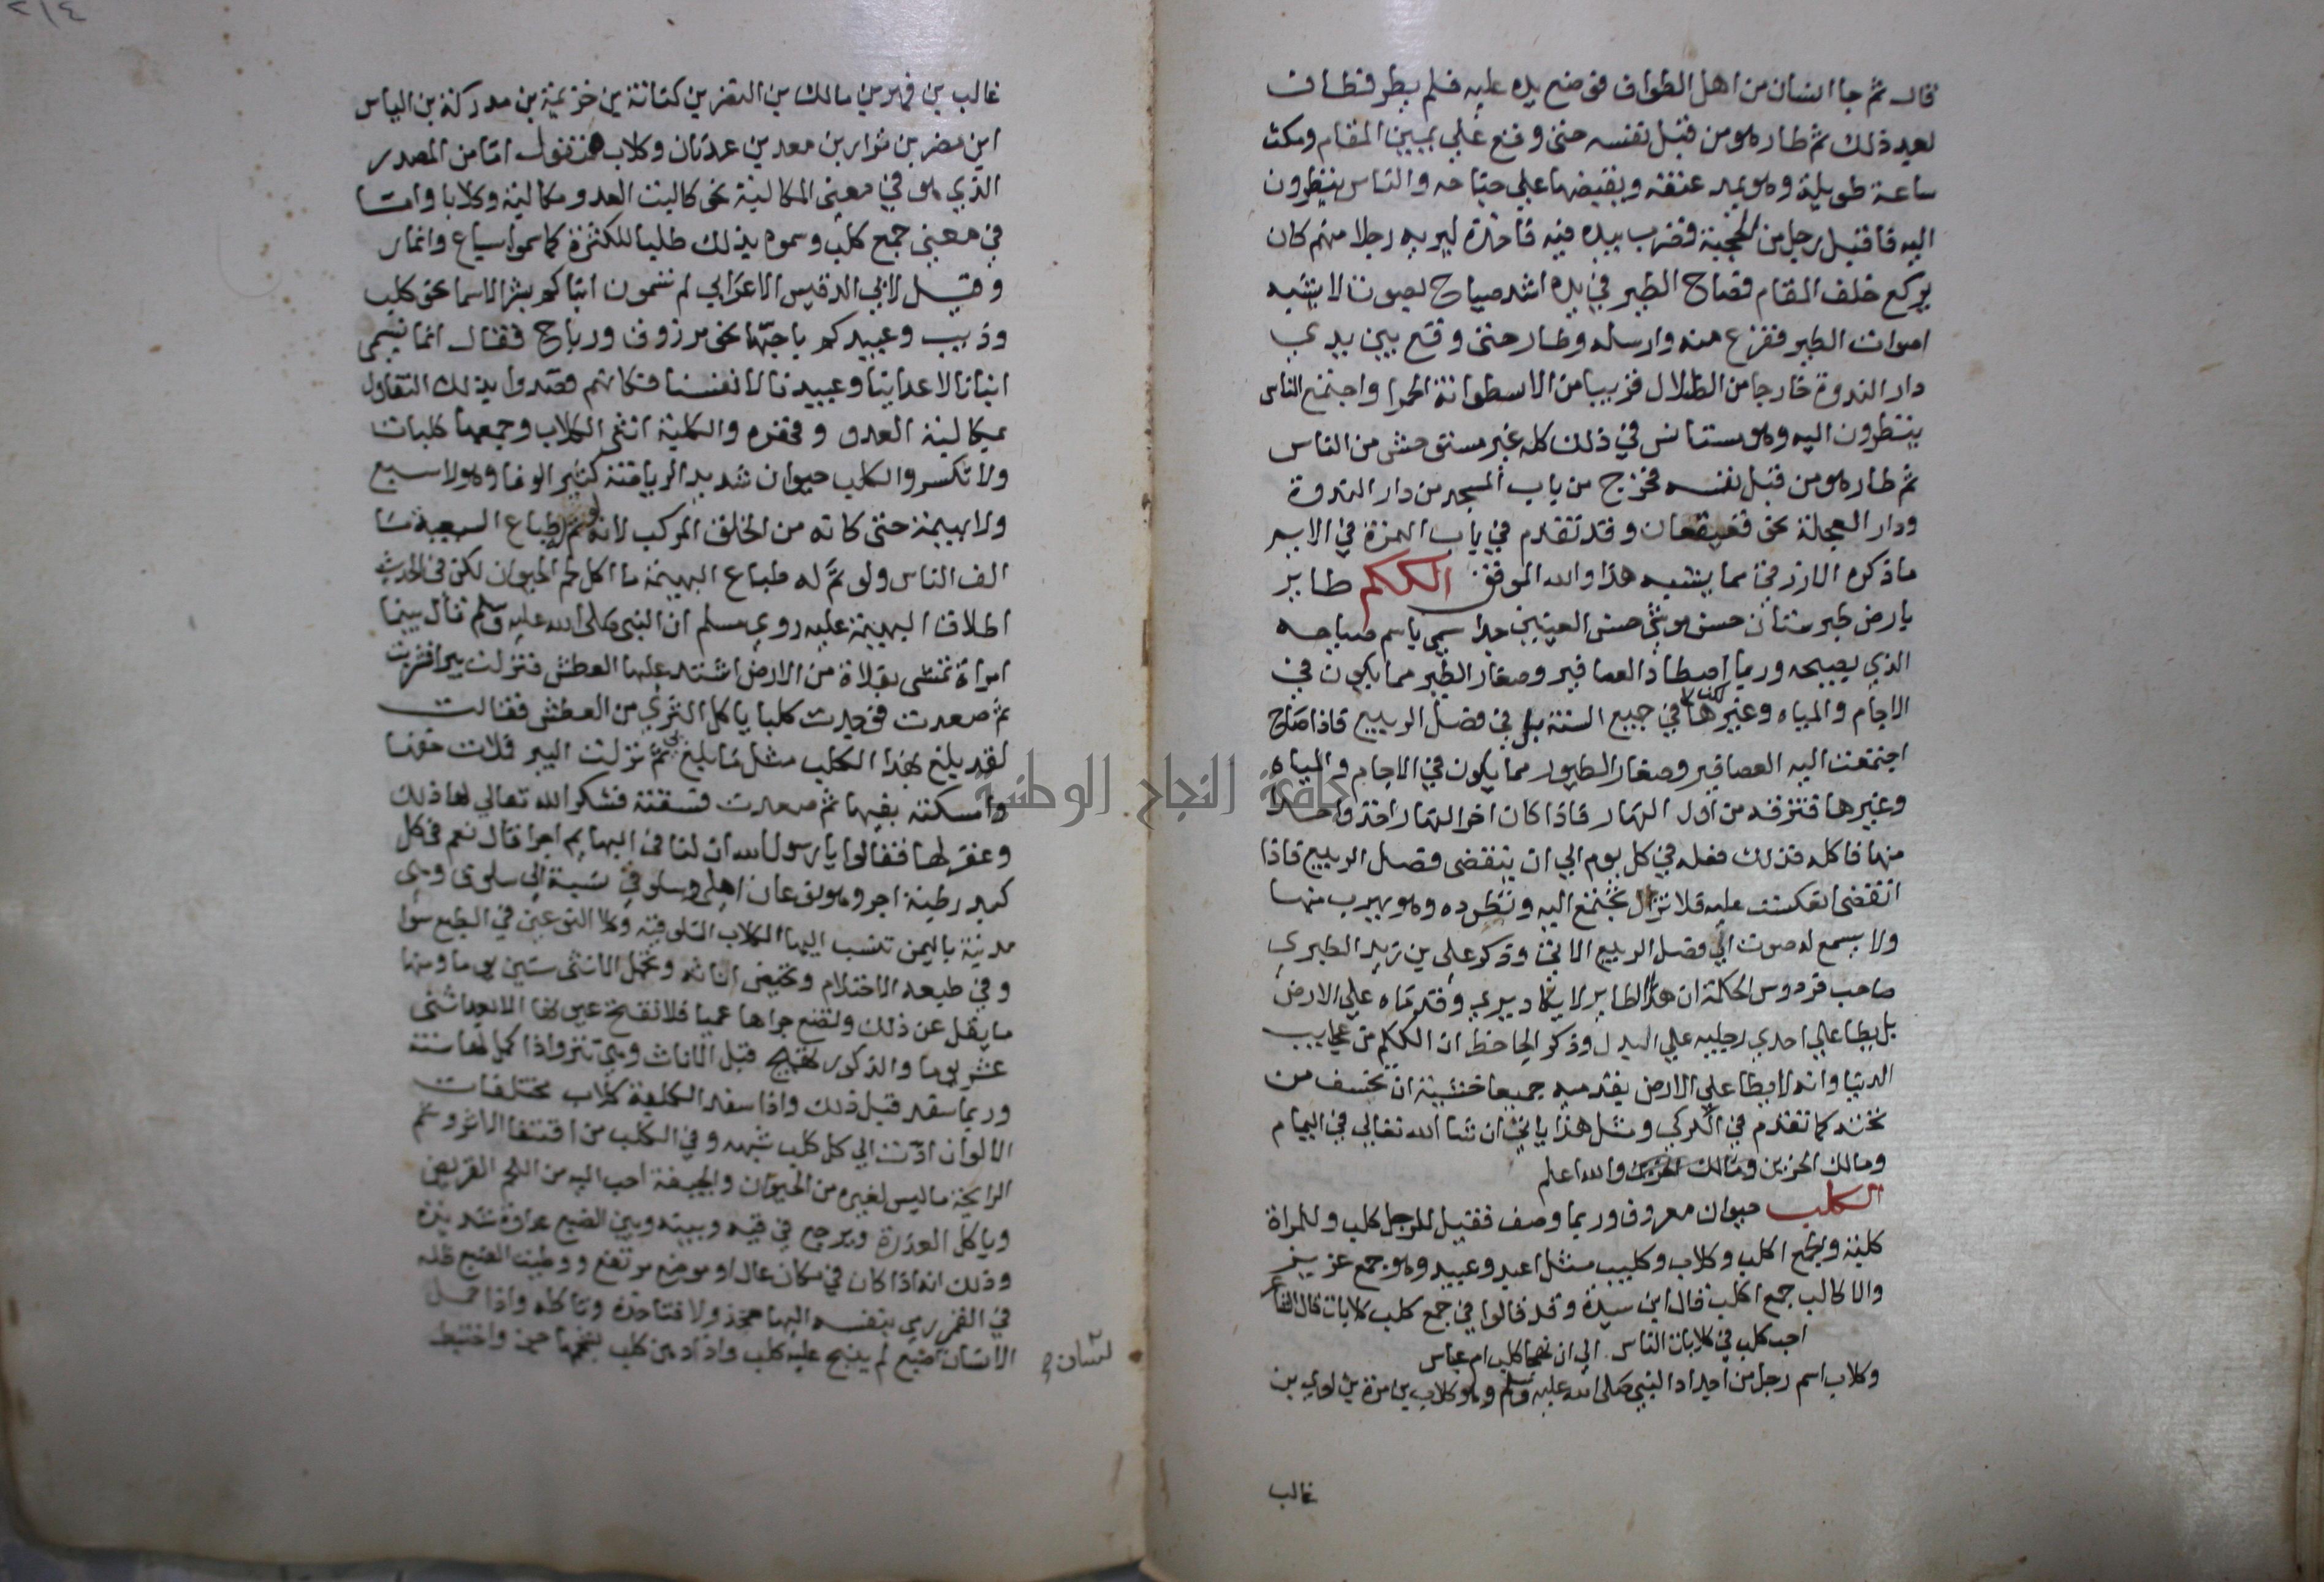 قال ثم جا انسان من اهل الطواف فوضع يده عليه فلم يطر فطاف
بعد ذلك ثم طار هو من قبل نفسه حتى وقع علي يمين المقام ومكث
ساعة طويلة وهو يمد عنقه ويقبضها علي جناحه والناس ينظرون
اليه فاقبل رجل من الحجبة فضرب بيده فيه فاخذه ليريه رجلا منهم كان
يركع خلف المقام فصاح الطير في يده اشد صياح بصوت لا يشبه
اصوات الطير ففزع منه وارسله وطار حتى وقع بين يدي
دار الندوة خارجا من الظلال قريبا من الاسطوانة الحمرا واجتمع الناس
ينظرون اليه وهو مستانس في ذلك كله غير مستوحش من الناس
ثم طار هو من قبل نفسه فخرج من باب المسجد من دار الندوة
ودار العجلة نحو قعيقعان وقد تقدم في باب الهمزة في الايم
ما ذكره الازرقي مما يشبه هذا والله الموفق الككم طاير
بارض طبرستان حسن موشي حسن العينين جدا سمي باسم صياحه
الذي يصيحه وربما اصطاد العصافير وصغار الطير مما يكون في
الاجام والمياه وغيرها لكن لا في جميع السنة بل في فصل الربيع فاذا صاح
اجتمعت اليه العصافير وصغار الطيور مما يكون في الاجام والمياه
وغيرها فتزقه من اول النهار فاذا كان اخر النهار اخذ واحدا
منها فاكله فذلك فعله في كل يوم الي ان ينقضى فصل الربيع فاذا
انقضى انعكست عليه فلا تزال تجتمع اليه وتطرده وهو يهرب منها
ولا يسمع له صوت الي فصل الربيع الاتي وذكر علي بن زيد الطبري
صاحب فردوس الحكمة ان هذا الطاير لا يكاد يري وقدماه علي الارض
بل يطا علي احدي رجليه علي البدل وذكر الجاحظ ان الككم من عجايب
الدنيا وانه لا يطا علي الارض بقدميه جميعا خشية ان تخسف من
تحته كما تقدم في الكركي ومثل هذا ياتي ان شا الله تعالي في اليمام
ومالك الحزين والله اعلم
الكلب حيوان معروف وربما وصف فقيل للرجل كلب وللمراة
كلبة والجمع اكلب وكلاب وكليب مثل اعبد وعبيد وهو جمع عزيز
والاكالب جمع اكلب قال ابن سيدة وقد قالوا في جمع كلب كلابات قال الشاعر
احب كلب في كلابات الناس الي ان نبحا كلب ام عباس
وكلاب اسم رجل من اجداد النبي صلى الله عليه وسلم وهو كلاب بن مرة بن لوي بن
غالب
غالب بن فهر بن مالك بن النضر بن كنانة بن خزيمة بن مدركة بن الياس
ابن مضر بن نزار بن معد بن عدنان وكلاب منقول اما من المصدر
الذي هو في معنى المكالبة نحو كالبت العدو مكالبة وكلابا واما
في معنى جمع كلب وسموه بذلك طلبا للكثرة كما سموا سباع وانمار
وقيل لابي الدقيس الاعرابي لم تسمون ابناكم بشر الاسما نحو كلب
وذيب وعبيدكم باحبها نحو مرزوق ورباح فقال انما نسمي
ابنانا لاعداينا وعبيدنا لانفسنا فكانهم قصدوا بذلك التفاول
بمكالبة العدو وقهره والكلبة انثى الكلاب وجمعها كلبات
ولا تكسر والكلب حيوان شديد الرياضة كثير الوفا وهو لا سبع
ولا بهيمة حتى كانه من الخلق المركب لانه لو تم له طباع السبعية ما
الف الناس ولو تم له طباع البهيمة ما اكل لحم الحيوان لكن في الحديث
اطلاق البهيمة عليه روي مسلم ان النبي صلى الله عليه وسلم قال بينما
امراة تمشى بفلاة من الارض اشتد عليها العطش فنزلت بيرا فشربت
ثم صعدت فوجدت كلبا ياكل الثري من العطش فقالت
لقد بلغ بهذا الكلب مثل ما بلغ بي ثم نزلت البير فملات خفها
وامسكته بفيها ثم صعدت فسقته فشكر الله تعالي لها ذلك
وغفر لها فقالوا يا رسول الله ان لنا في البهايم اجرا قال نعم في كل
كبد رطبة اجر وهو نوعان اهلي وسلوقي نسبة الي سلوق وهي
مدينة باليمن تنسب اليها الكلاب السلوقية وكلا النوعين في الطبع سوا
وفي طبعه الاحتلام وتحيض اناثه وتحمل الانثى ستين يوما ومنها
ما يقل عن ذلك وتضع جراها عميا فلا تفتح عيونها الا بعد اثني
عشر يوما والذكور تهيج قبل الاناث وهي تنزو اذا كمل لها سنة
وربما سفد قبل ذلك واذا سفد الكلبة كلاب مختلفات
الالوان ادت الي كل كلب شبهه وفي الكلب من اقتفا الاثر وشم
الرايحة ما ليس لغيره من الحيوان والجيفة احب اليه من اللحم الغريض
وياكل العذرة ويرجع في قيه وبينه وبين الضبع عداوة شديدة
وذلك انه اذا كان في مكان عال او موضع مرتفع ووطيت الضبع ظله
في القمر رمي بنفسه اليها مخذولا فتاخذه وتاكله واذا حمل
الانسان لسان ضبع لم ينبح عليه كلب واذا دهن كلب بشحمها جن واختبط
لسان
٢١٤
جامعة النجاح الوطنية